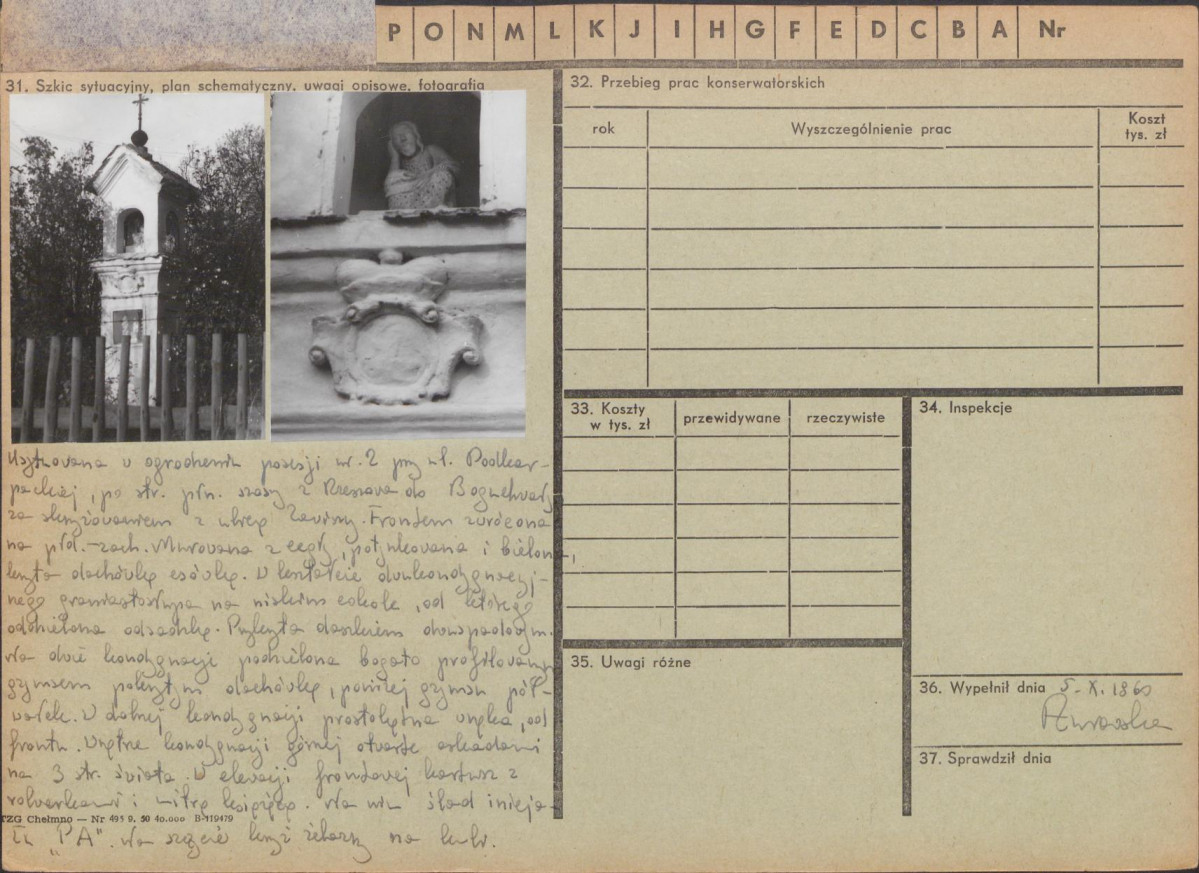 P O N M L K J I H G F E D C B A Nr
31. Szkic sytuacyjny, plan schematyczny, uwagi opisowe, fotografia
Usytuowana w ogrodzeniu posesji nr. 2 przy ul. Podkar-
packiej, po str. płn. szosy z Rzeszowa do
za skrzyżowaniem z ulicą Zawiszy. Frontem zwrócona
na płd.-zach. Murowana z cegły, potynkowana i bielona,
kryta dachówką esówką. W kształcie dwukondygnacyj-
nego graniastosłupa na niskim cokole, od którego
oddzielona odsadzką. Przykryta daszkiem dwuspadowym.
Na dwie kondygnacje podzielona bogato profilowanym
gzymsem pokrytym dachówką, poniżej gzymsu pół-
wałek. W dolnej kondygnacji prostokątna wnęka, od
frontu. Wnętrze kondygnacji górnej otwarte arkadami
na 3 str. świata. W elewacji frontowej kartusz z
i mitrą książęcą. Na nim ślad inicja-
TZG Chełmno — Nr 495 9. 50 40.000 B-119479
łu „PA". Na szczycie krzyż żelazny na kuli.
32. Przebieg prac konserwatorskich
rok
Wyszczególnienie prac
Koszt
tys. zł
33. Koszty
w tys. zł
przewidywane
rzeczywiste
34. Inspekcje
35. Uwagi różne
36. Wypełnił dnia 5-X. 1960
37. Sprawdził dnia